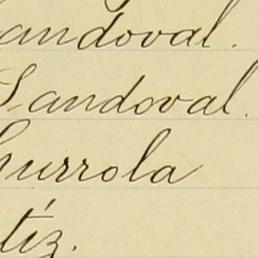 andoval.
Sandoval.
urrola
tíz.